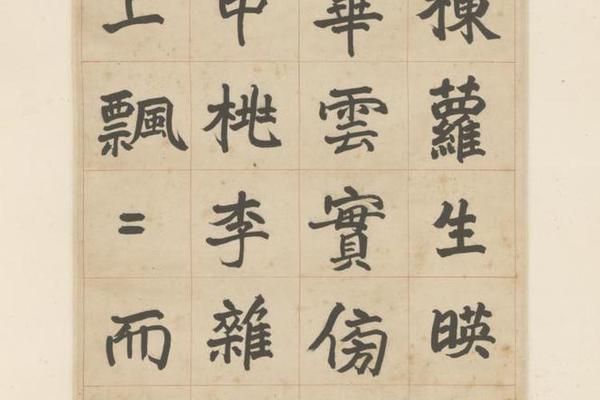 棟蘿生暎
華雲實傍
中桃李雜
上飄〻而